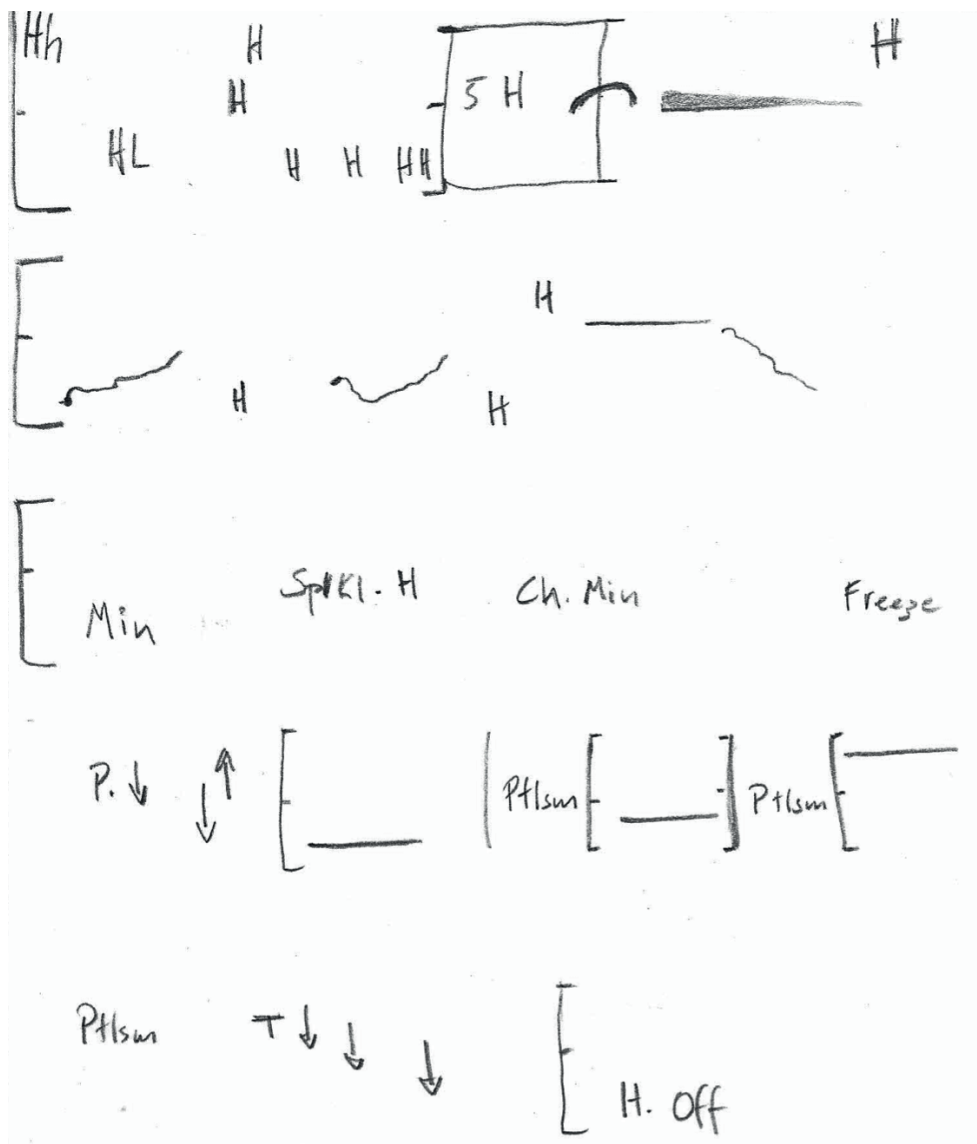 Hh H H
H 5 H
HL H H HH
H
H H
Min SplKl. H Ch. Min Freeze
P. ↓ ↓ ↑ Ptlsm Ptlsm
Ptlsm T ↓ ↓ ↓
H. Off